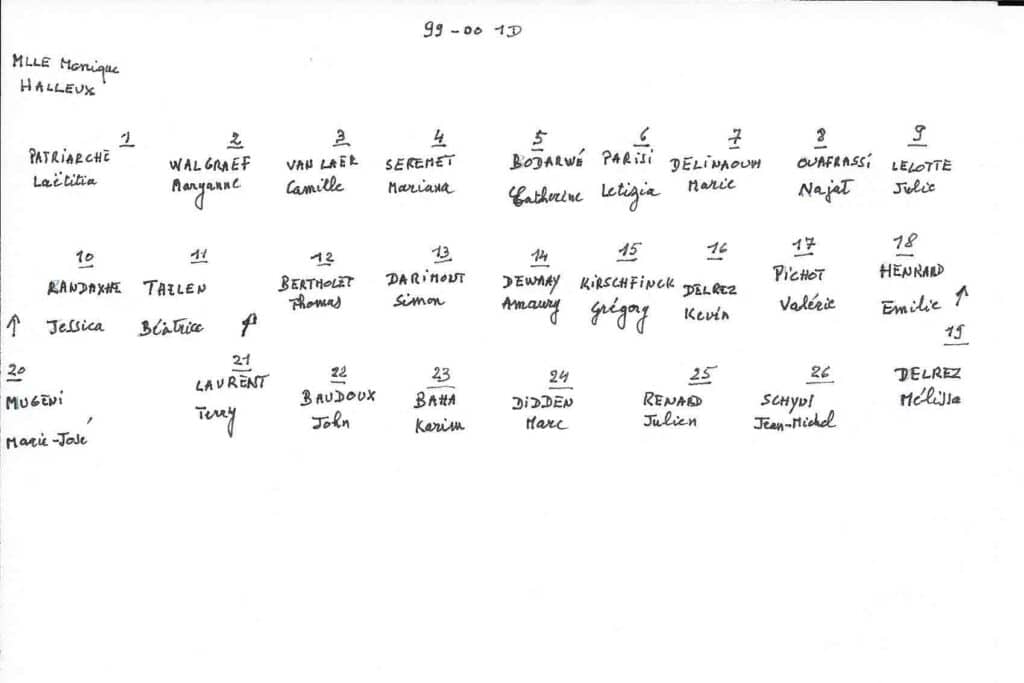 99-00 1D
MLLE Monique
HALLEUX
1 2 3 4 5 6 7 8 9
PATRIARCHE WALGRAEF VAN LAER SEREMET BODARWÉ PARISI DELINAOUM OUAFRASSI LELOTTE
Laëtitia Maryanne Camille Mariana Catherine Letizia Marie Najat Julie
10 11 12 13 14 15 16 17 18
RANDAXHE TAELEN BERTHOLET DARIMONT DEWARY KIRSCHFINCK DELREZ PICHOT HENRARD
↑ Jessica Béatrice ↑ Thomas Simon Amaury Grégory Kevin Valérie Emilie ↑
20 21 22 23 24 25 26 19
MUGENI LAURENT BAUDOUX BAHA DIDDEN RENARD SCHYNS DELREZ
Marie-José Terry John Karim Marc Julien Jean-Michel Mélissa